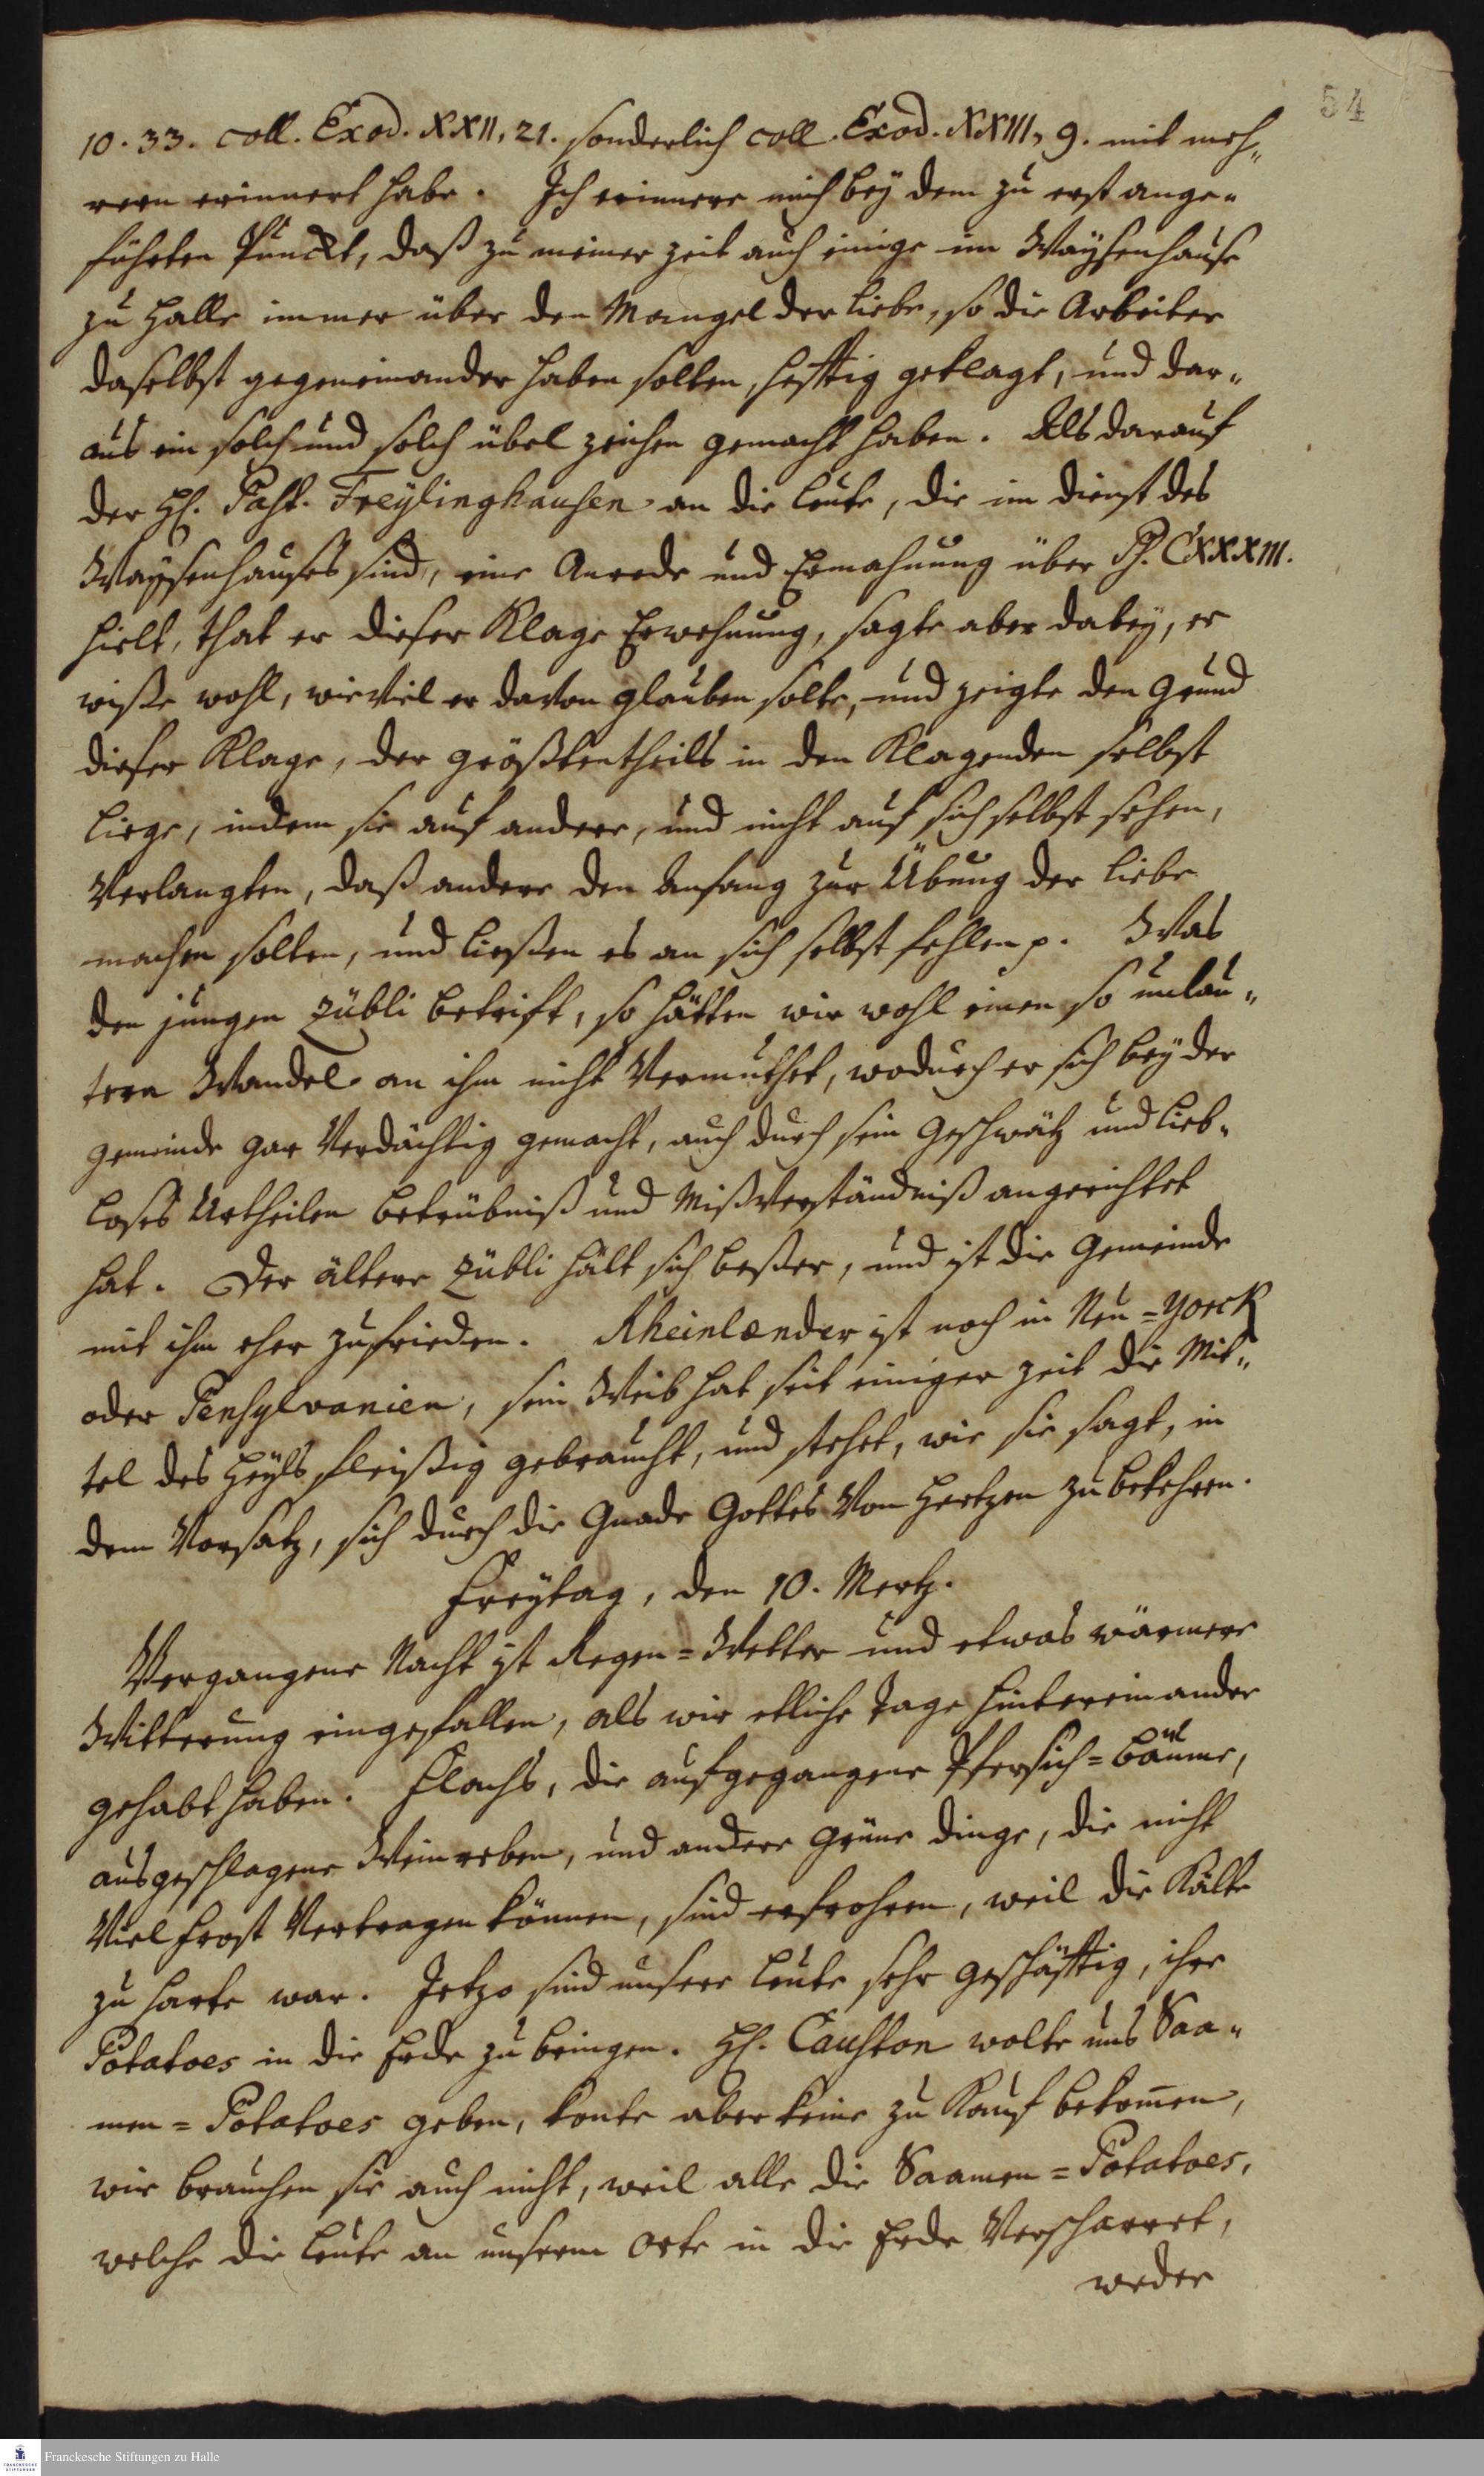 54
10. 33. coll. Exod. XXII, 21. sonderlich coll. Exod. XXIII, 9. mit meh„
rern erinnert habe. Ich erinnere mich bey dem zu erst ange„
führten Punckt, daß zu meiner Zeit auch einige im Waysenhause
zu Halle immer über den Mangel der Liebe, so die Arbeiter
daselbst gegeneinander haben solten, hefftig geklagt, und dar„
aus ein solch und solch übel Zeichen gemacht haben. Als darauf
der H. Past. Freylinghausen an die Leute, die im Dienst des
Waysenhauses sind, eine Anrede und Ermahnung über Ps. CXXXIII.
hielt, that er dieser Klage Erwehnung, sagte aber dabey, er
wiße wohl, wieviel er davon glauben solte, und zeigte den Grund
dieser Klage, der größtentheils in den Klagenden selbst
liege, indem sie auf andere, und nicht auf sich selbst sehen,
verlangten, daß andere den Anfang zur Übung der Liebe
machen solten, und ließen es an sich selbst fehlen p. Was
den jungen Zübli betrift, so hätten wir wohl einen so unlau„
tern Wandel an ihm nicht vermuthet, wodurch er sich bey der
Gemeinde gar verdächtig gemacht, auch durch sein Geschwätz und lieb„
loses Urtheilen Betrübniß und Mißverständniß angerichtet
hat. Der ältere Zübli hält sich beßer, und ist die Gemeinde
mit ihm eher zufrieden. Rheinlænder ist noch in Neu=Yorck
oder Pensylvanien, sein Weib hat seit einiger Zeit die Mit„
tel des Heyls fleißig gebraucht, und stehet, wie sie sagt, in
dem Vorsatz, sich durch die Gnade Gottes von Hertzen zu bekehren.
Freytag, den 10. Mertz.
Vergangene Nacht ist Regen=Wetter und etwas wärmere
Witterung eingefallen, als wir etliche Tage hintereinander
gehabt haben. Flachs, die aufgegangene Pfersich=Bäume,
ausgeschlagene Weinreben, und andere grüne Dinge, die nicht
viel Frost vertragen können, sind erfrohren, weil die Kälte
zu harte war. Jetzo sind unsere Leute sehr geschäfftig, ihre
Potatoes in die Erde zu bringen. H. Causton wolte uns Saa„
men=Potatoes geben, konte aber keine zu Kauf bekom̄en,
wir brauchen sie auch nicht, weil alle die Saamen=Potatoes,
welche die Leute an unserm Orte in die Erde verscharret,
weder
Franckesche Stiftungen zu Halle